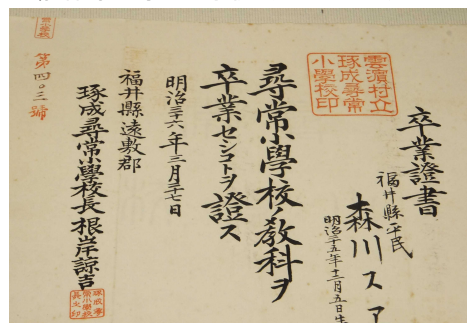 卒業證書
福井縣平民
森川スア
明治二十五年十二月五日生
雲濵村立
琢成尋常
小學校印
尋常小學校ノ敎科ヲ
卒業セシコトヲ證ス
明治三十六年三月二十七日
福井縣遠敷郡
琢成尋常小學校長根岸諒吉
第四〇三號